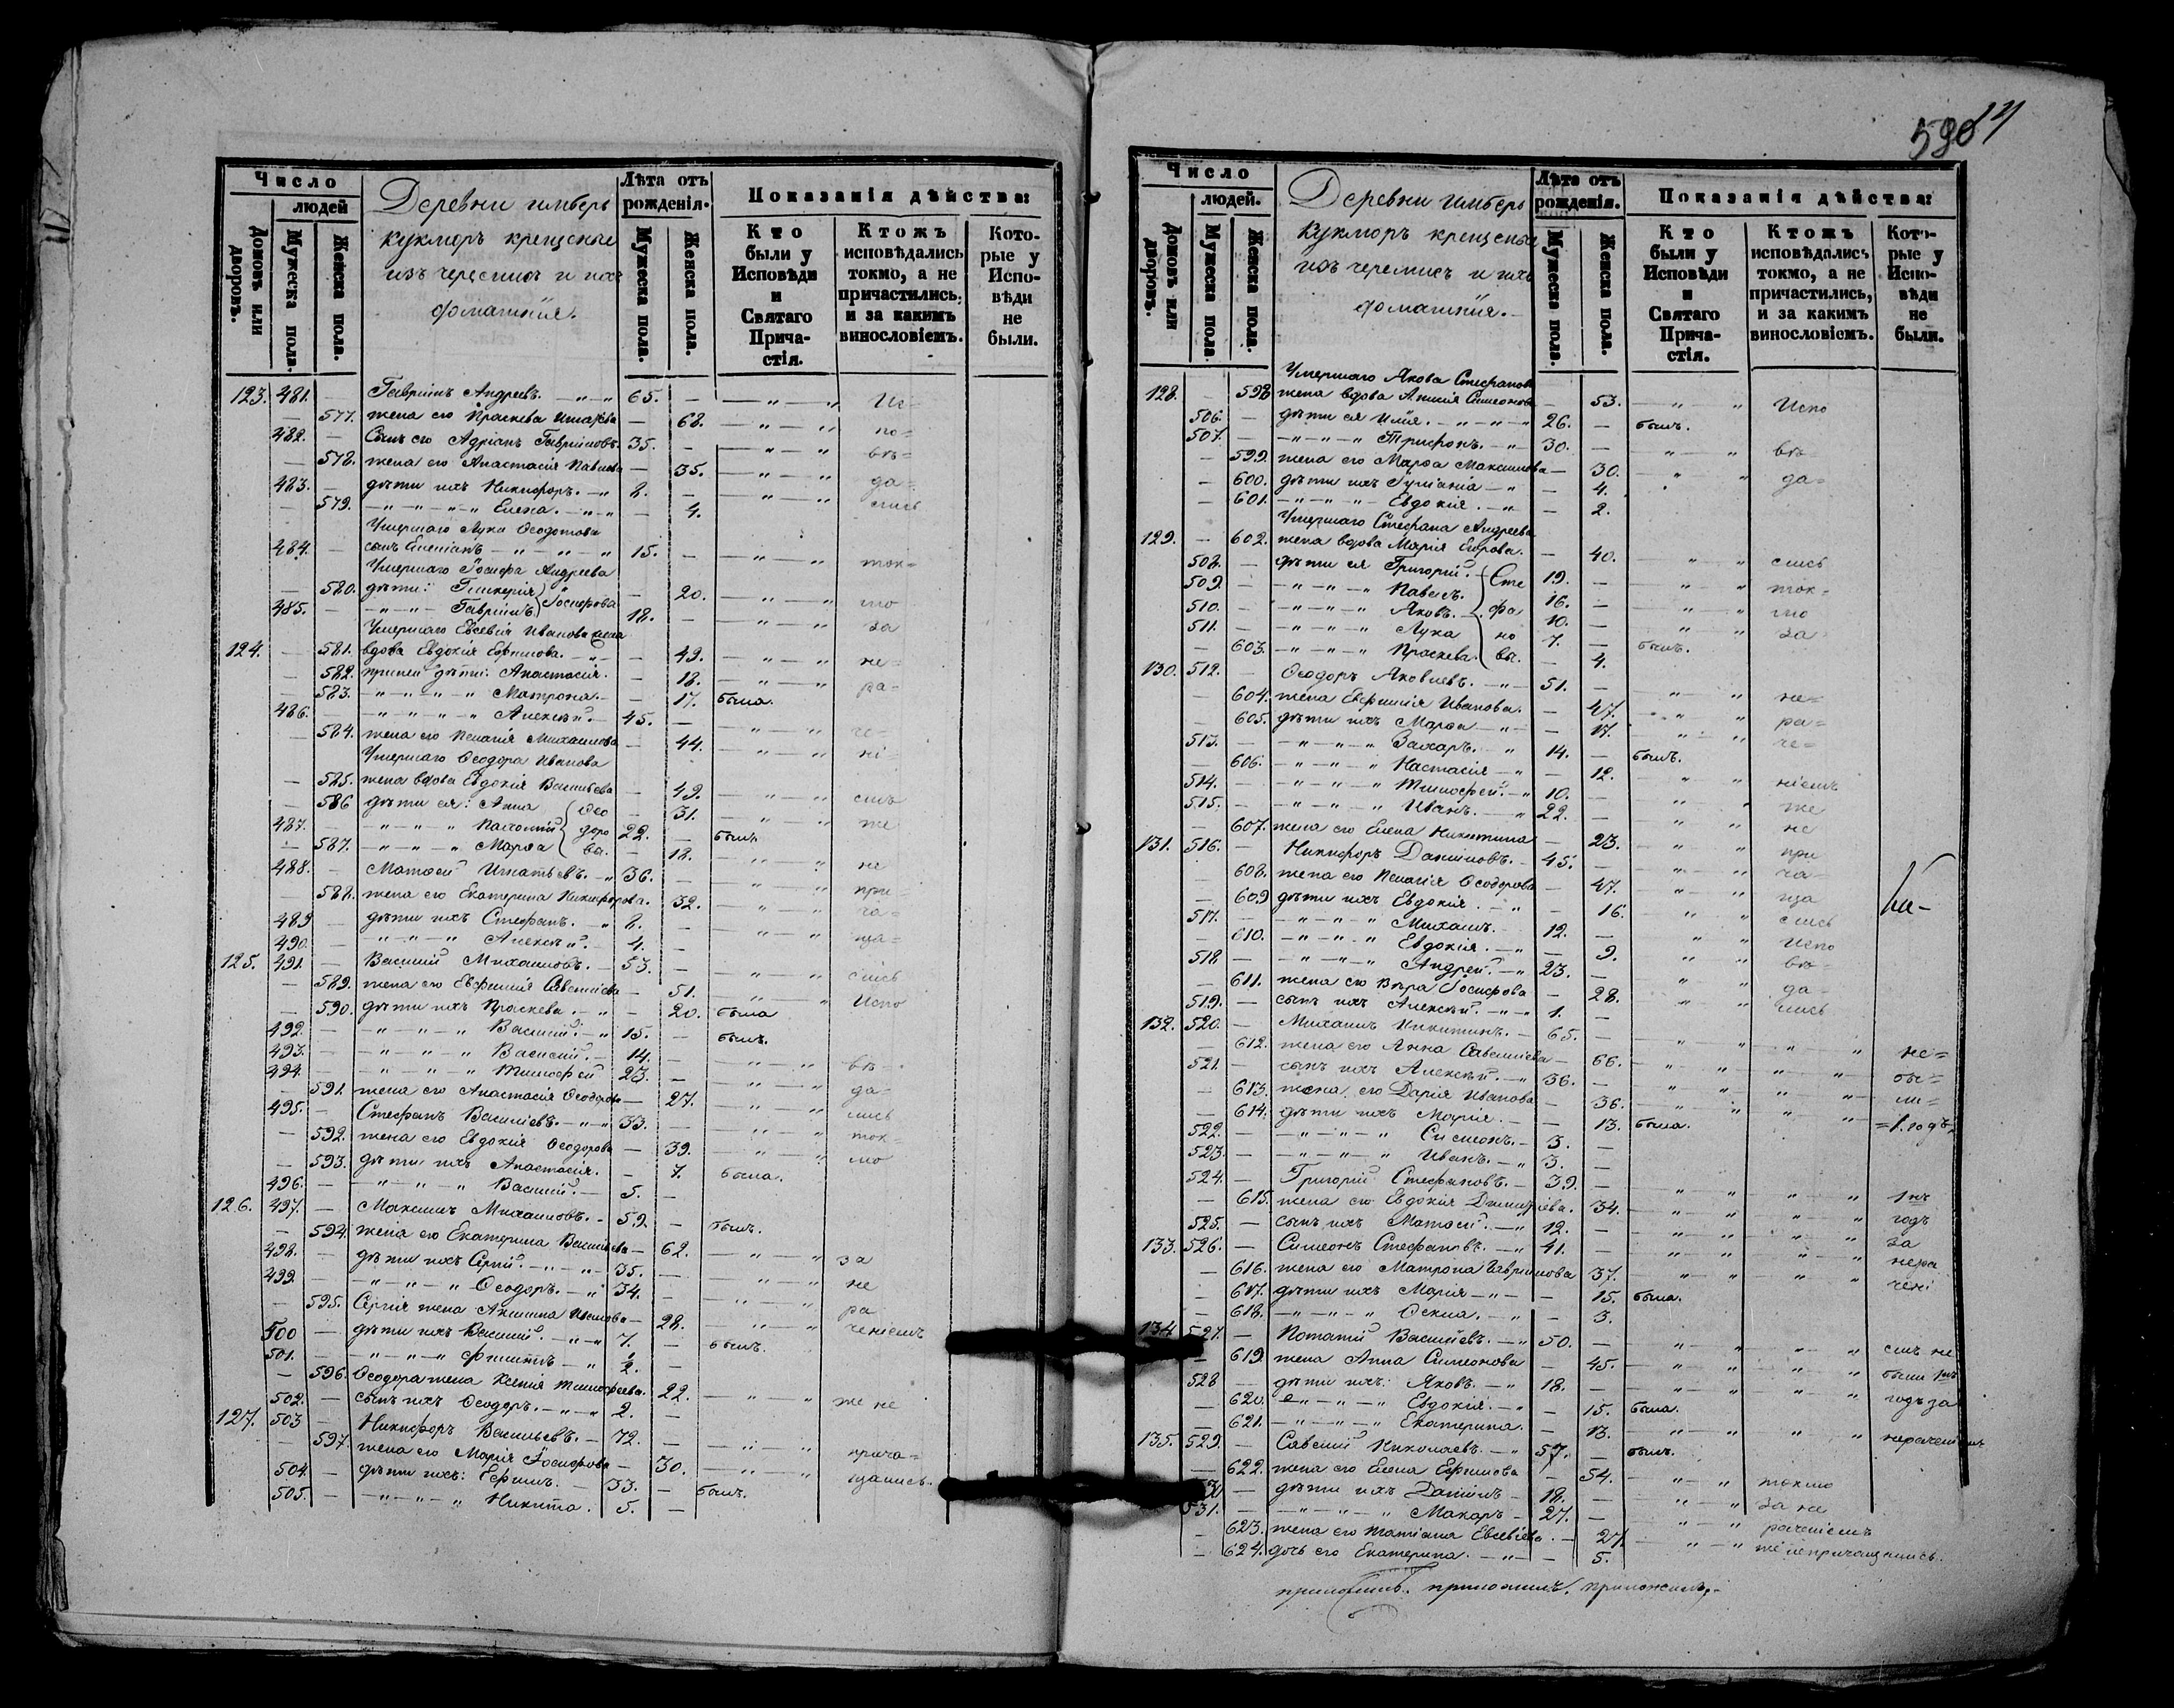 590 14
Число
людей
Домовъ или дворовъ.
Мужеска пола.
Женска пола.
Деревни имберь
кукморъ крещеные
изъ черемисъ и ихъ
домашнія.
Лѣта отъ рожденія.
Мужеска пола.
Женска пола.
Показанія дѣйства:
Кто были у Исповѣди и Святаго Прича-стія.
Ктожъ исповѣдались токмо, а не причастились, и за какимъ винословіемъ.
Кото-рые у Испо-вѣди не были.
123. 481. — Гавріилъ Андреевъ. — „ — „ 65. — — „ — „ Ис=
— 577. жена его Праскева — 68. — „ — „ по=
482. — Сынъ его Адріанъ Гавріиловъ. 35. — — „ — „ вѣ=
— 578. жена его Анастасія Павлова — 35. — „ — „ да=
483. — дѣти ихъ Никифоръ. — „ 8. — — „ — „ лись
— 579. — „ — „ — „ Елена. — „ — „ — 4.
Умершаго Луки Ѳеодотова
484. — сынъ — „ — „ — „ 15. — — „ — „ ток=
Умершаго Іосифа Андреева
— 580. дѣти: Гликерія — 20. — „ — „ мо
485. — — „ — „ — Гавріилъ Іосифова 18. — — „ — „ за
Умершаго Евсевія Иванова жена
124. — 581. вдова Евдокія Ефимова. — „ — — 49. — „ — „ не=
— 582. дѣти: Анастасія. — 18. — „ — „ ра=
— 583. „ — „ — „ — „ Матрона. — — 17. была.
486. — — „ — „ — „ — „ Алексѣй. — 45. — — „ — „ че=
— 584. жена его Пелагія Михаилова — 44. — „ — „ ні=
Умершаго Ѳеодора Иванова
— 585. жена вдова Евдокія Васильева — 49. — „ — „ емъ
— 586 дѣти ея: Анна Ѳео — 31. — „ — „ же
487. — — „ — „ — „ Пахомій доро 22. — былъ
— 587. — „ — „ — „ Марѳа ва. — 18. — „ „ не
488. — Матвей Игнатьевъ. — „ 36. — — „ „ при
— 588. жена его Екатерина Никифорова. — 32. — „ „ ча=
489 — дѣти ихъ Стефанъ. „ 8. — — „ — „ ща=
490. — — „ — „ — „ Алексѣй. — 4. —
125. 491. — Василій Михаиловъ. — 53. — — „ — „ лись
— 589. жена его Евфимія Савельева — 51. — „ „ Испо
— 590. дѣти ихъ Праскева. — „ — 20. была
492. — — „ — „ — „ Василій. — „ 15. — былъ.
493. — — „ — „ — „ Василій. — 14. — — „ — „ вѣ=
494. — — „ — „ — „ Тимофей 23. — — „ — „ да=
— 591. жена его Анастасія Ѳеодорова — 27. — „ — „ лись
495. — Стефанъ Васильевъ. — „ 33. — — „ „ ток=
— 592. жена его Евдокія Ѳеодорова — 39. — „ „ мо
— 593. дѣти ихъ Анастасія. — 7. была.
496. — — „ — „ — „ Василій. — 5. —
126. 497. — Максимъ Михаиловъ. — 59. — былъ.
— 594. жена его Екатерина Васильева — 62. — „ „ за
498. — дѣти ихъ Сергій. — „ — „ 35. — — „ — „ не
499. — — „ — „ — „ Ѳеодоръ. — „ 34. — — „ — „ ра
— 595. Сергія жена Акилина — 28. — „ — „ ченіемъ
500 — дѣти ихъ Василій. — „ — „ 7. — былъ.
501. — — „ — „ — „ Филиппъ — „ 2. —
— 596. Ѳеодора жена Ксенія Тимофеева. — 22. — „ „ же не
502. — сынъ ихъ Ѳеодоръ. — „ — „ 2. —
127. 503 — Никифоръ Васильевъ. — 72. — — „ „ прича=
— 597. жена его Марія Іосифова — 30. — „ — „ щались.
504. — дѣти ихъ: Ефимъ. — 33. — былъ.
505. — — „ — „ — „ Никита. 5. —
Число
людей.
Домовъ или дворовъ.
Мужеска пола.
Женска пола.
Деревни имберь
кукморъ крещеные
изъ черемисъ и ихъ
домашнія.
Лѣта отъ рожденія.
Мужеска пола.
Женска пола.
Показанія дѣйства:
Кто были у Исповѣди и Святаго Прича-стія.
Ктожъ исповѣдались токмо, а не причастились, и за какимъ винословіемъ.
Кото-рые у Испо-вѣди не были.
Умершаго Якова Стефанова
128. — 598 жена вдова Анисія Симеонова — 53. — „ „ Испо
506. — дѣти ея Илія. — „ — „ — „ 26. — былъ.
507. — — „ — „ — „ Трифонъ. — „ 30. — „ „ вѣ=
— 599. жена его Марѳа Максимова — 30. „ „ да=
— 600. дѣти ихъ — „ — 4.
— 601. — „ — „ — „ Евдокія. — „ — 2.
Умершаго Стефана Андреева
129. — 602. жена вдова Марія Егорова. — 40. „ „ лись
508. — дѣти ея Григорій. Сте 19. — „ „ ток=
509. — — „ — „ — „ Павелъ. 16. — „ „ мо
510. — — „ — „ — „ Яковъ. фа 10. — „ „ за
511. — — „ — „ — „ Лука но 7. — былъ.
— 603. — „ — „ — „ Праскева. вы. — 4.
130. 512. — Ѳеодоръ Яковлевъ. — „ — 51. — „ „ не=
— 604. жена Евфимія Иванова. — 47. „ „ ра=
— 605. дѣти ихъ Марѳа — „ — — 17. „ „ че=
513. — — „ — „ — „ Захаръ. „ 14. — былъ.
— 606. — „ — „ — „ Настасія — „ — 12. „ „ ніемъ
514. — — „ — „ — „ Тимофей. — „ 10. — „ „ же
515. — — „ — „ — „ Иванъ. — „ 22. — „ „ не
— 607. жена его Елена Никитина — 23. „ „ при
131. 516. — Никифоръ Даниловъ. — 45. — „ „ ча=
— 608. жена его Пелагія Ѳеодорова — 47. „ „ ща
— 609 дѣти ихъ Евдокія. — „ — 16. „ „ лись
517. — — „ — „ — „ Михаилъ. — 12. — „ „ Испо
— 610. — „ — „ — „ Евдокія. — „ — 9. „ „ вѣ=
518 — — „ — „ — „ Андрей. — „ 23. — „ „ да=
— 611. жена его Вѣра Іосифова — 28. „ „ лись
519. — сынъ ихъ Алексѣй. — „ — „ 1. —
132. 520. — Михаилъ Никитинъ. — 65. — „ „ „ „ не=
— 612. жена его Анна Савельева — 66. „ „ „ „ бы=
521. — сынъ ихъ Алексѣй. — „ 36. — „ „ „ „ ли=
— 613. жена его Дарія Иванова — 36. „ „ „ „ =1. годъ
— 614. дѣти ихъ Марія. — — 13. была.
522. — — „ — „ — „ Симеонъ. — 3. —
523. — — „ — „ — „ Иванъ. — „ 3. —
524. — Григорій Стефановъ. — 39. — „ „ „ „ 1нъ
— 615. жена его Евдокія Димитріева. — 34. „ „ „ „ годъ
525. — сынъ ихъ Матвей. — „ 12. — „ „ „ „ за
133. 526. — Симеонъ Стефановъ. — „ 41. — „ „ „ „ нера
— 616. жена его Матрона Гавриилова 37. „ „ „ „ чені
— 617. дѣти ихъ Марія — „ — — 15. была.
— 618. — „ — „ — „ — „ — 3.
134 527. — Потапій Васильевъ. — „ 50. — „ „ „ „ емъ не
— 619. жена Анна Симеонова — 45. „ „ „ „ были 1нъ
528 — дѣти ихъ: Яковъ. — „ 18. — „ „ „ „ годъ за
— 620. — „ — „ — „ Евдокія. — „ — 15. была.
— 621. — „ — „ — „ Екатерина. — 13. „ „ „ „ нераченіемъ
135. 529. — Савелій Николаевъ. — „ 57. — былъ.
— 622. жена его Елена Ефимова — 54. „ „ токмо
530 — дѣти ихъ Даніилъ — 18. — „ „ за не
531. — — „ — „ — „ Макаръ — 27. — „ „ раченіемъ
— 623. жена его Татіана Евсевіева. — 27. „ „ же непричащались.
— 624. дочь его Екатерина. — „ — — 5.